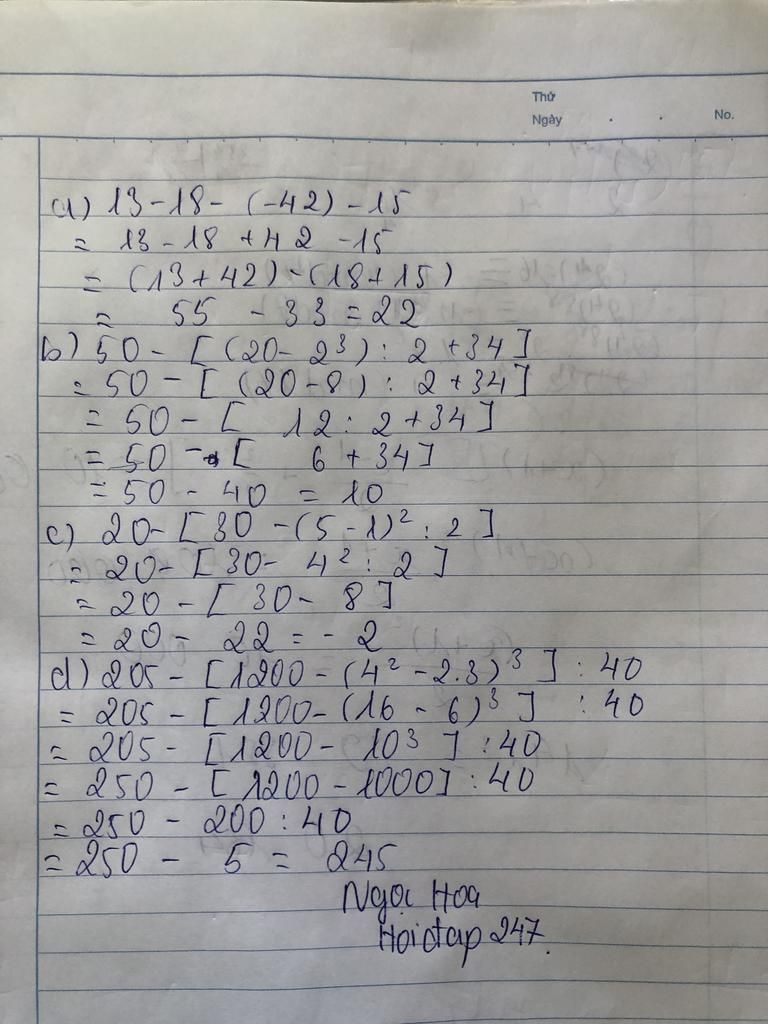 Thứ
Ngày . . No.
a) 13 - 18 - (-42) - 15
= 13 - 18 + 42 - 15
= (13 + 42) - (18 + 15)
= 55 - 33 = 22
b) 50 - [(20 - 2³) : 2 + 34]
= 50 - [(20 - 8) : 2 + 34]
= 50 - [ 12 : 2 + 34]
= 50 - [ 6 + 34]
= 50 - 40 = 10
c) 20 - [30 - (5 - 1)² : 2]
= 20 - [30 - 4² : 2]
= 20 - [30 - 8]
= 20 - 22 = - 2
d) 205 - [1200 - (4² - 2.3)³] : 40
= 205 - [1200 - (16 - 6)³] : 40
= 205 - [1200 - 10³] : 40
= 250 - [1200 - 1000] : 40
= 250 - 200 : 40
= 250 - 5 = 245
Ngọc Hoa
Hoidap 247.